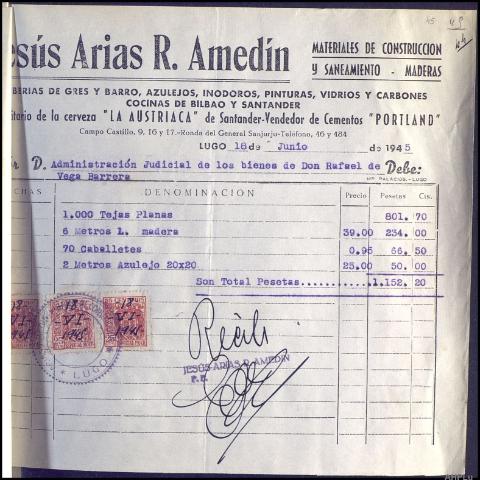 45 49
44
esús Arias R. Amedín
MATERIALES DE CONSTRUCCION
Y SANEAMIENTO - MADERAS
BERIAS DE GRES Y BARRO, AZULEJOS, INODOROS, PINTURAS, VIDRIOS Y CARBONES
COCINAS DE BILBAO Y SANTANDER
itario de la cerveza "LA AUSTRIACA" de Santander-Vendedor de Cementos "PORTLAND"
Campo Castillo, 9, 16 y 17.-Ronda del General Sanjurjo-Teléfono, 46 y 484
LUGO 18 de Junio de 1945
D. Administración Judicial de los bienes de Don Rafael de Debe:
Vega Barrera
IMP. PALACIOS.-LUGO
CHAS DENOMINACION Precio Pesetas Cts.
1.000 Tejas Planas 801. 70
6 Metros L. madera 39.00 234. 00
70 Caballetes 0.95 66. 50
2 Metros Azulejo 20x20 25.00 50. 00
Son Total Pesetas........... 1.152. 20
Recibí
JESÚS ARIAS R. AMEDÍN
P. P.
* LUGO *
AHPLu